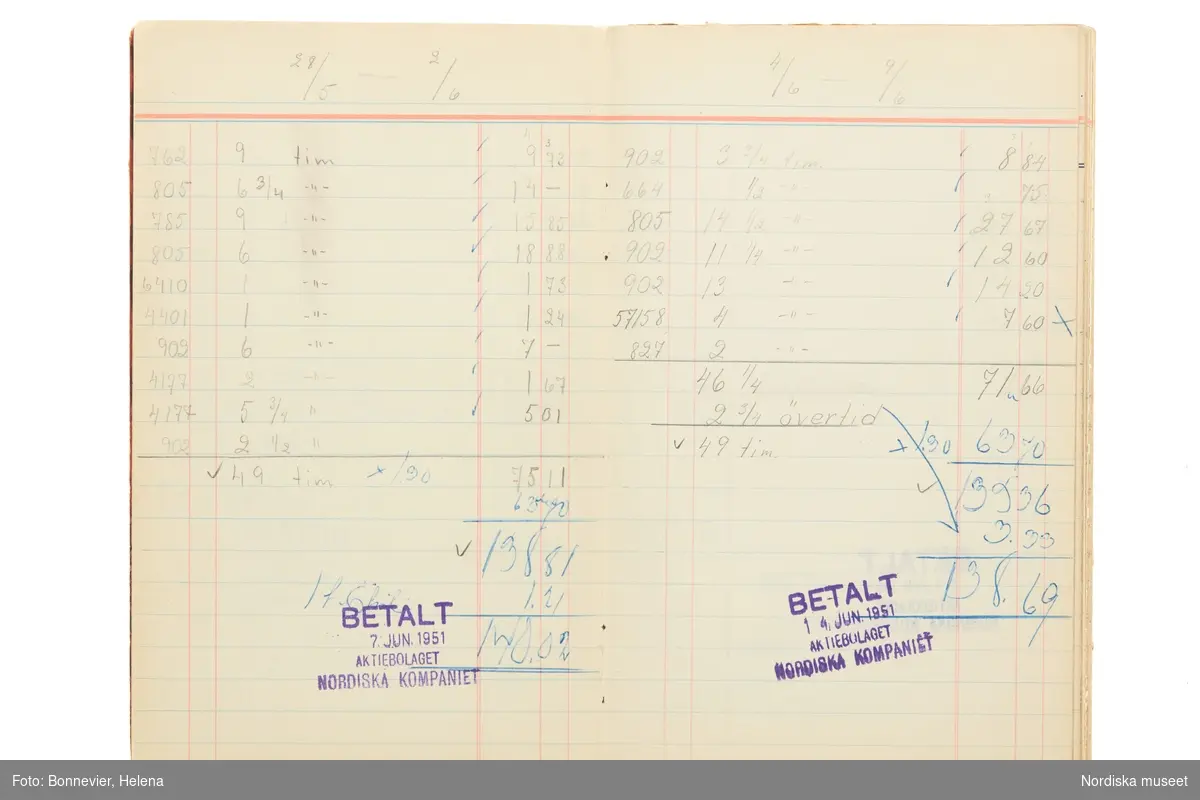 28/5 — 2/6
762 9 tim 9 73
805 6 3/4 -"- 14 —
785 9 -"- 15 85
805 6 -"- 18 88
6410 1 -"- 1 73
4401 1 -"- 1 24
902 6 -"- 7 —
4177 2 -"- 1 67
4177 5 3/4 " 5 01
902 2 1/2 "
✓ 49 tim × 1.30 75 11
63 70
✓ 138.81
1.21
140.02
BETALT
7. JUN. 1951
AKTIEBOLAGET
NORDISKA KOMPANIET
4/6 — 9/6
902 3 3/4 tim. 8 84
664 1/2 -"- 75
805 14 1/2 -"- 27 67
902 11 1/4 -"- 12 60
902 13 -"- 14 20
57158 4 -"- 7 60 ×
827 2 -"-
46 1/4 71 66
2 3/4 övertid
✓ 49 tim. × 1.30 63 70
✓ 135 36
3.33
138.69
BETALT
1 4. JUN. 1951
AKTIEBOLAGET
NORDISKA KOMPANIET
Foto: Bonnevier, Helena
Nordiska museet